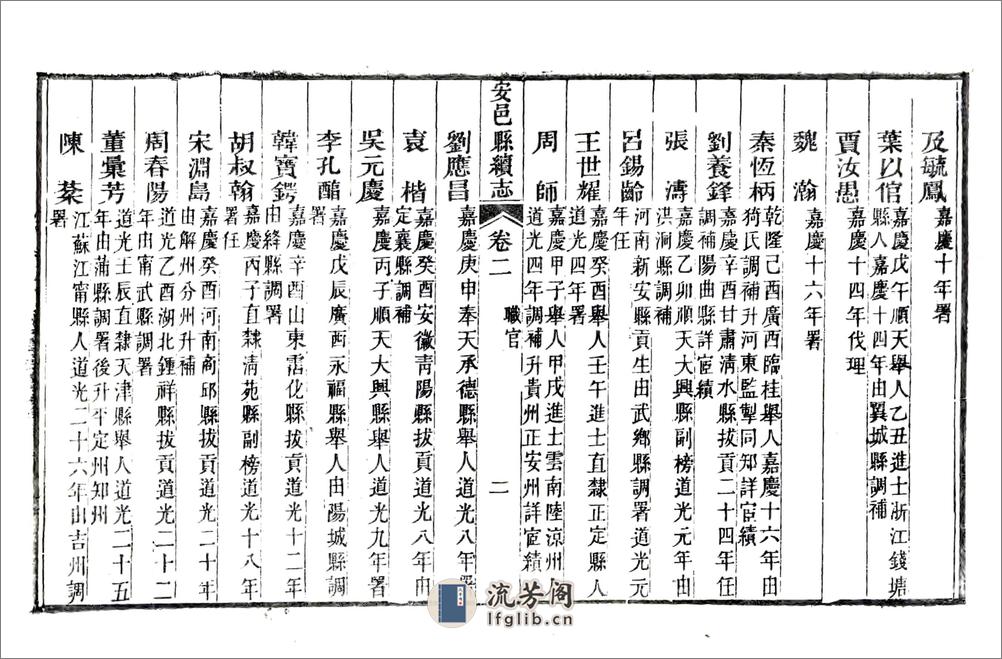 及毓鳳 嘉慶十年署
葉以倌 嘉慶戊午順天舉人乙丑進士浙江錢塘
縣人嘉慶十四年由翼城縣調補
賈汝愚 嘉慶十四年代理
魏瀚 嘉慶十六年署
秦恆柄 乾隆己酉廣西臨桂舉人嘉慶十六年由
猗氏調補升河東監掣同知詳宦績
劉養鋒 嘉慶辛酉甘肅淸水縣拔貢二十四年任
調補陽曲縣詳宦績
張濤 嘉慶乙卯順天大興縣副榜道光元年由
洪洞縣調補
呂錫齡 河南新安縣貢生由武鄉縣調署道光元
年任
王世耀 嘉慶癸酉舉人壬午進士直隸正定縣人
道光四年署
周師 嘉慶甲子舉人甲戌進士雲南陸涼州人
道光四年調補升貴州正安州詳宦績
安邑縣續志 卷二 職官 二
劉應昌 嘉慶庚申奉天承德縣舉人道光八年署
袁楷 嘉慶癸酉安徽靑陽縣拔貢道光八年由
定襄縣調補
吳元慶 嘉慶丙子順天大興縣舉人道光九年署
李孔醕 嘉慶戊辰廣西永福縣舉人由陽城縣調
署
韓寶鍔 嘉慶辛酉山東霑化縣拔貢道光十二年
由絳縣調署
胡叔翰 嘉慶丙子直隸淸苑縣副榜道光十八年
署任
宋淵島 嘉慶癸酉河南商邱縣拔貢道光二十年
由解州分州升補
周春陽 道光乙酉湖北鍾祥縣拔貢道光二十二
年由甯武縣調署
董彙芳 道光壬辰直隸天津縣舉人道光二十五
年由蒲縣調署後升平定州知州
陳棻 江蘇江甯縣人道光二十六年由吉州調
署
流芳阁
lfglib.cn